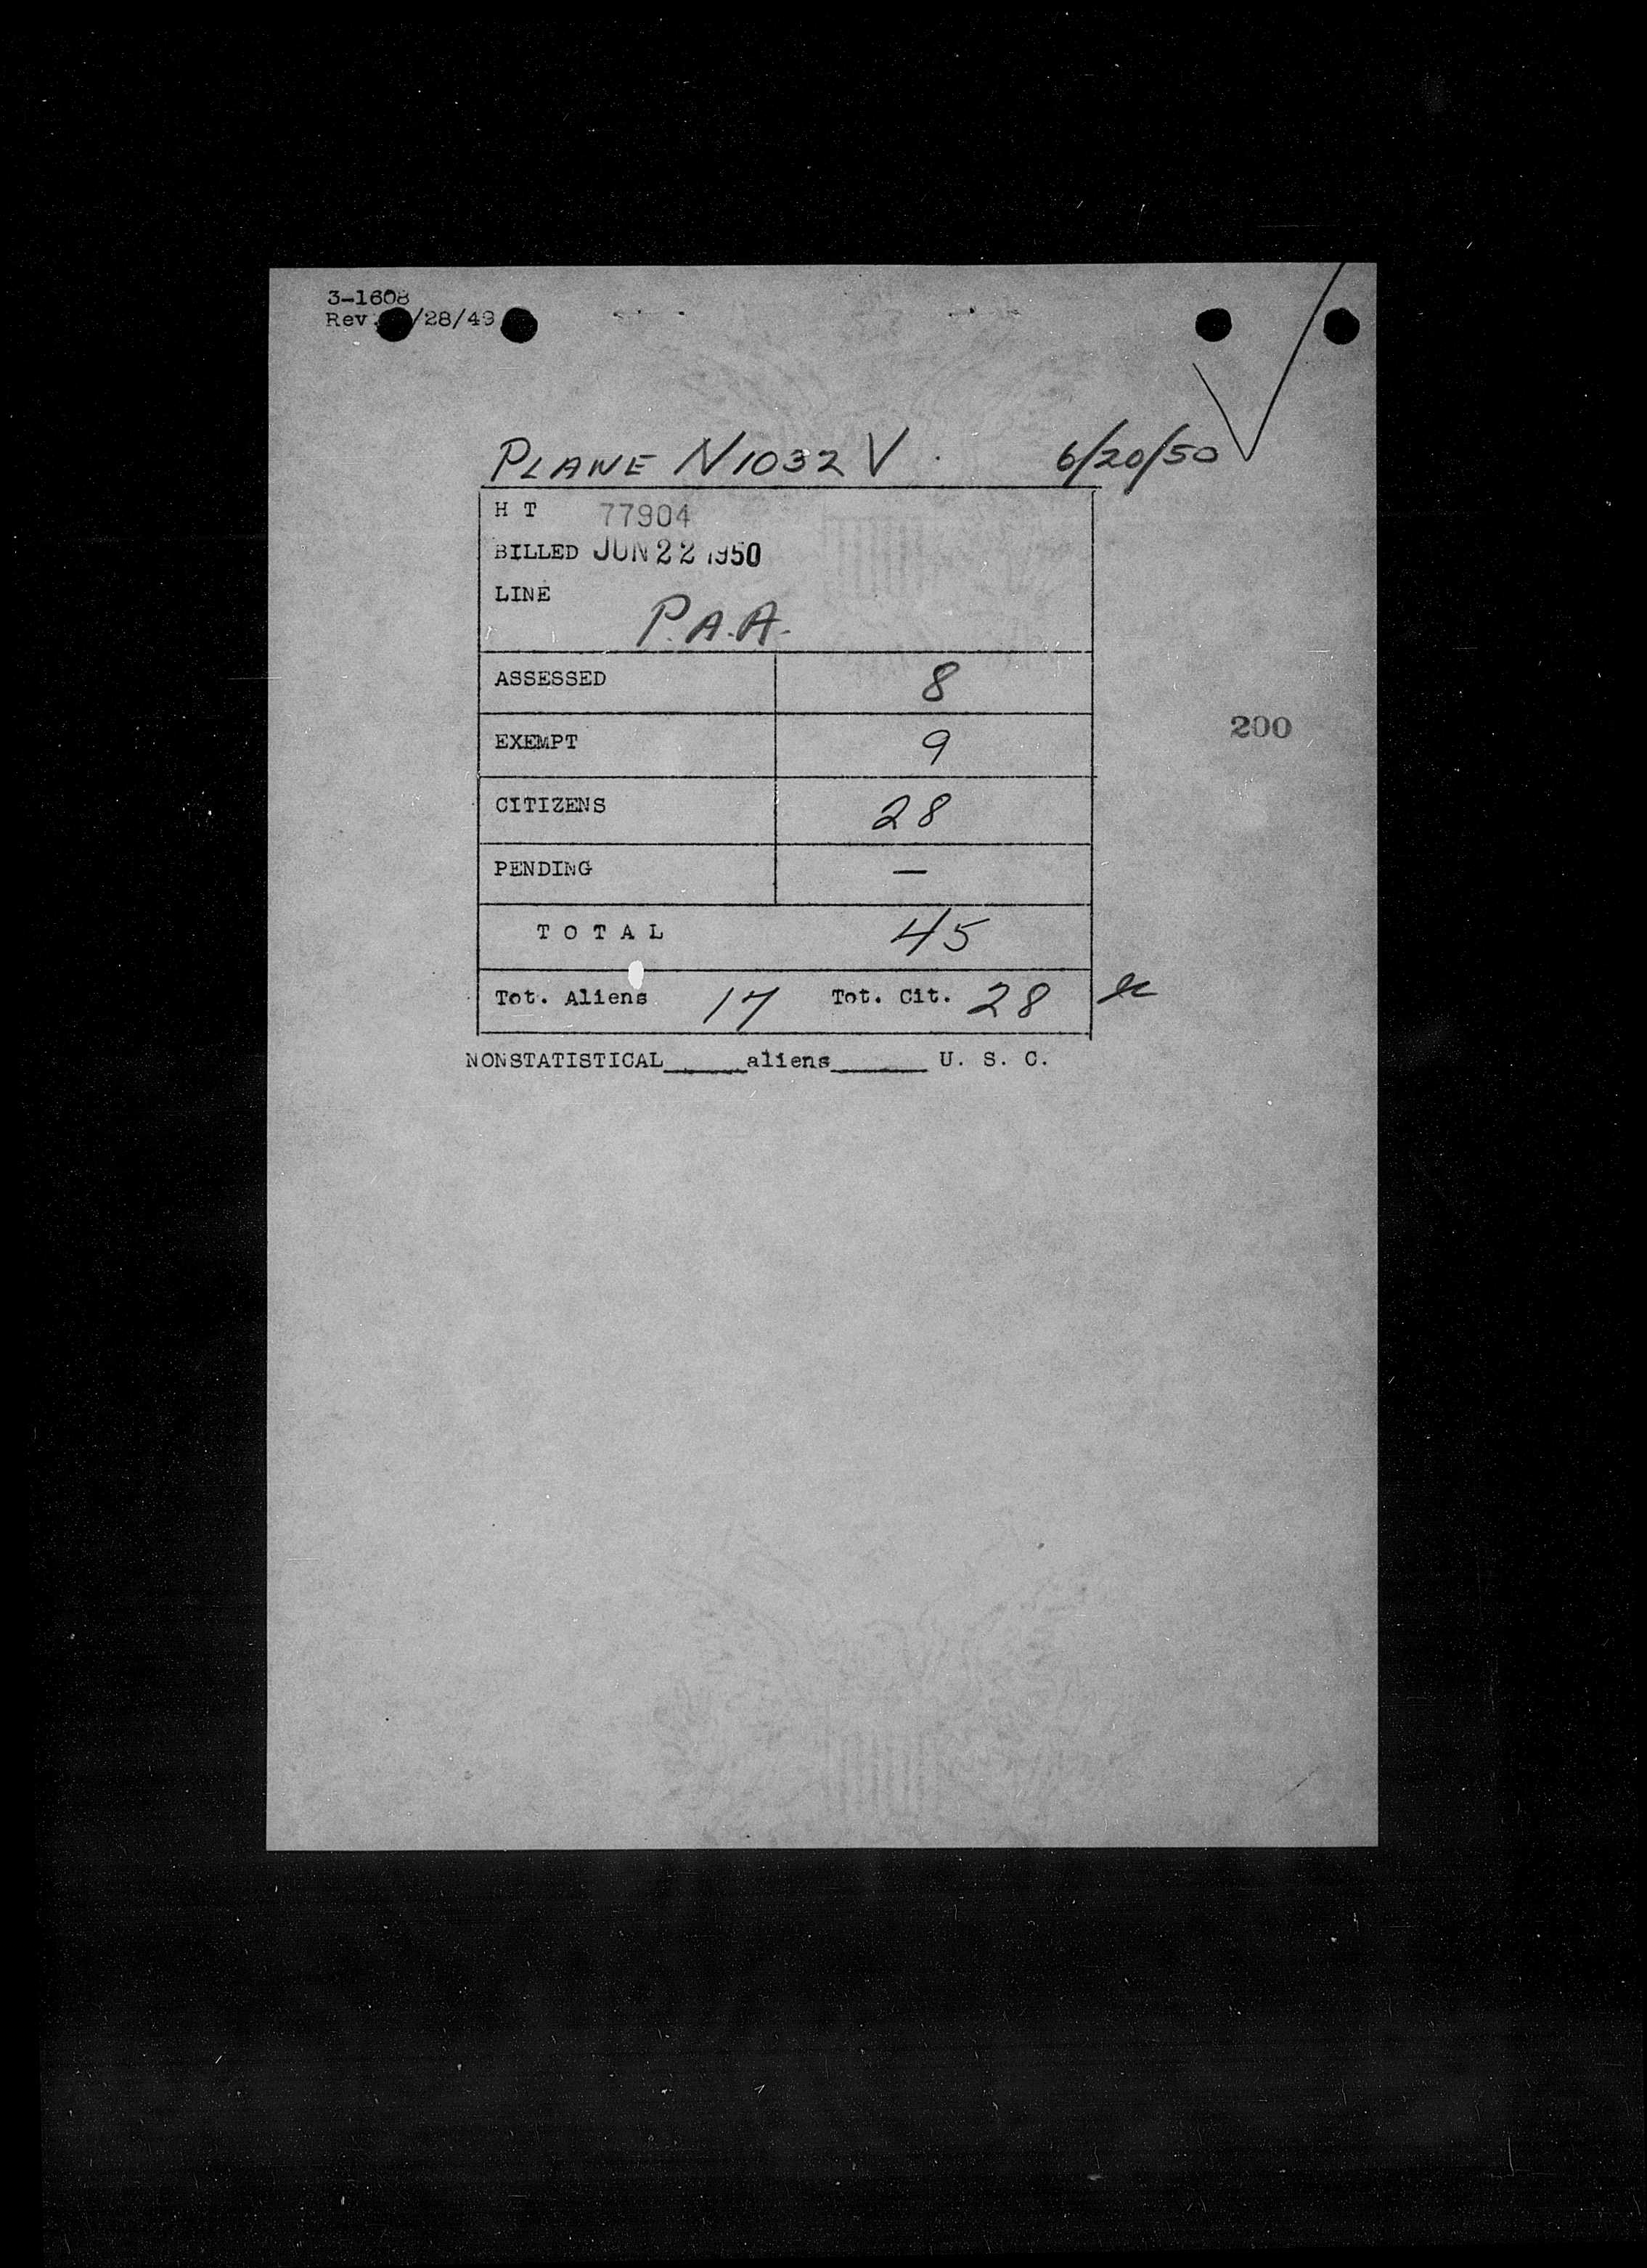 3-1608
Rev. /28/49
PLANE N1032V 6/20/50
H T 77904
BILLED JUN 22 1950
LINE
P.A.A.
ASSESSED 8
EXEMPT 9
200
CITIZENS 28
PENDING —
TOTAL 45
Tot. Aliens 17 Tot. Cit. 28
NONSTATISTICAL_____aliens______ U. S. C.